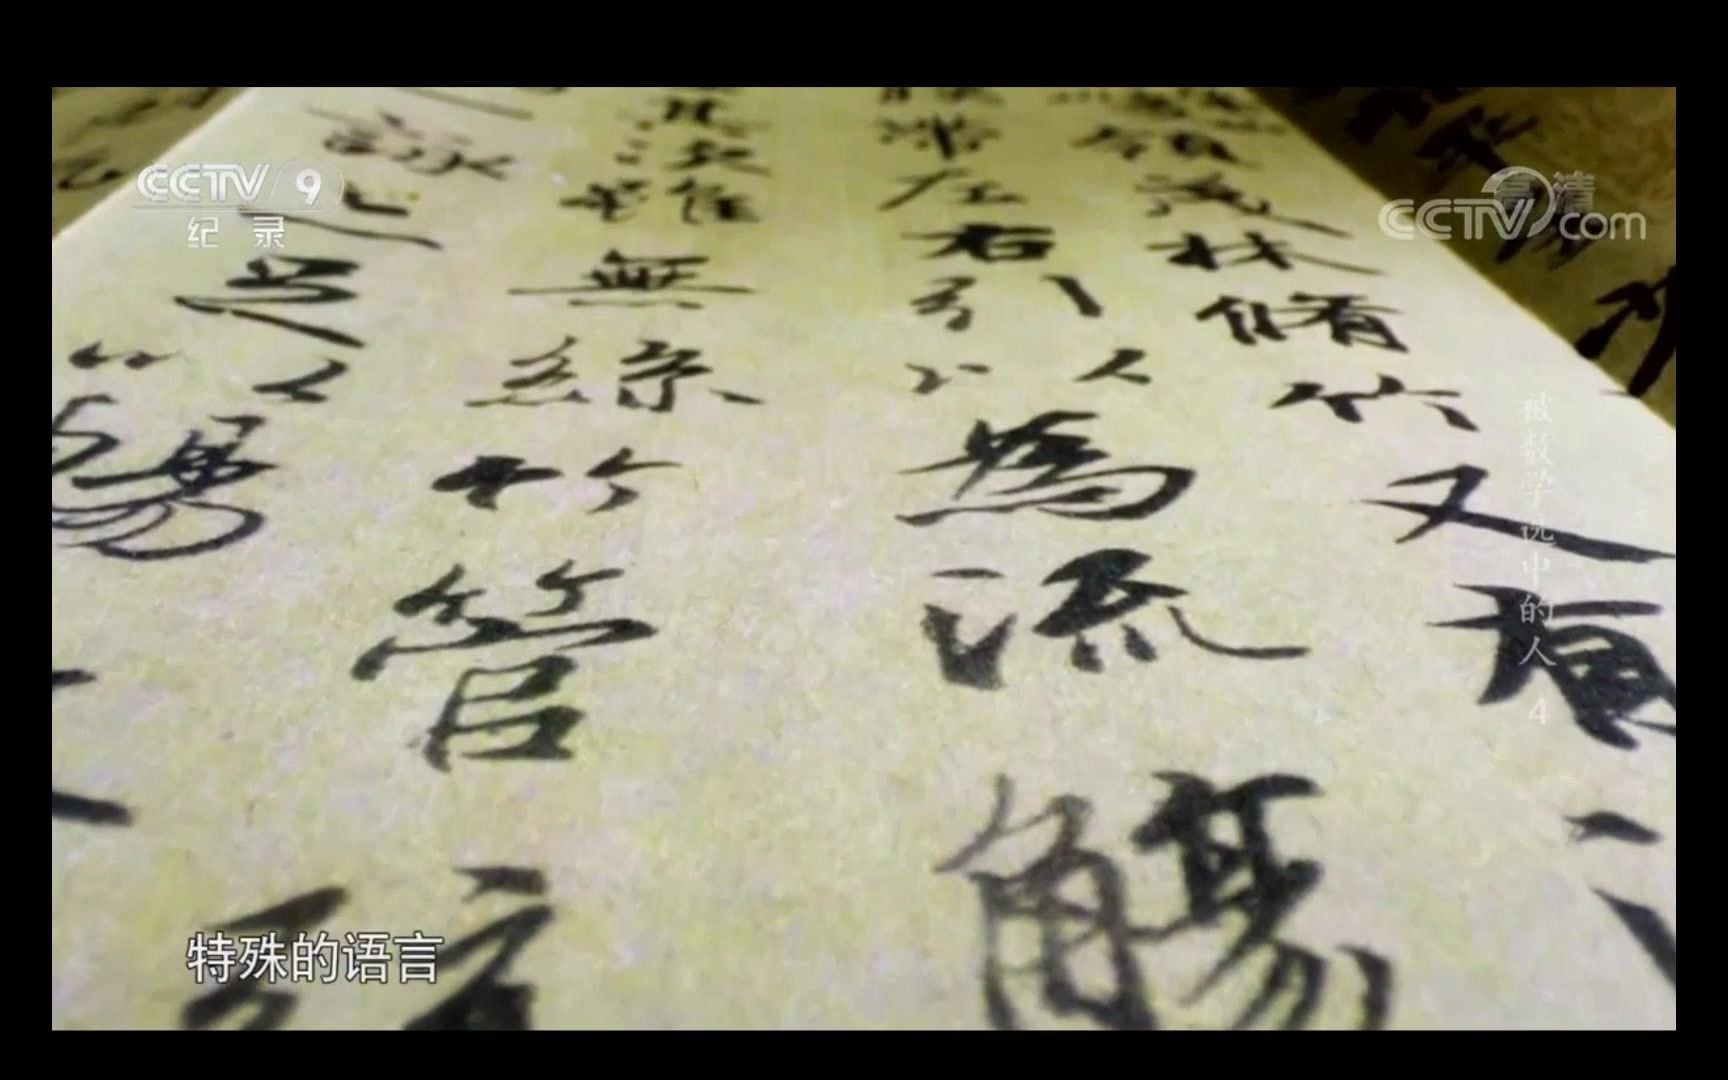 CCTV 9
纪录
高清
CCTV com
領茂林脩竹又有
帶左右引以為流觴
其次雖無絲竹管弦
詠亦足以暢
被数学选中的人 4
特殊的语言